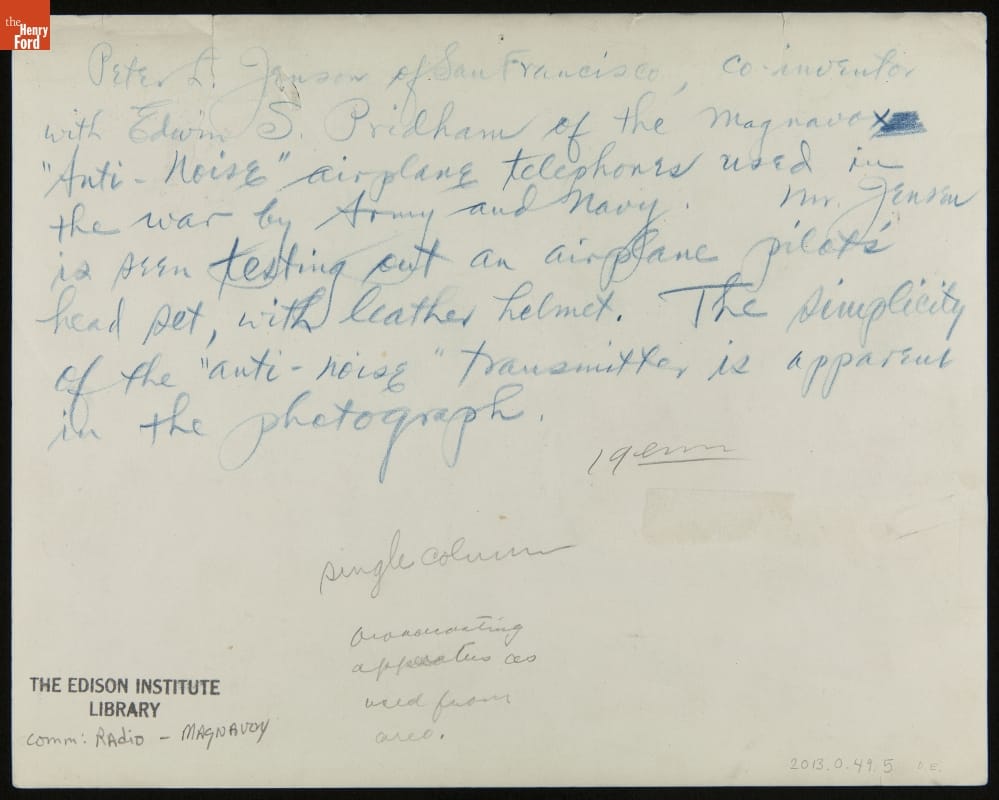 the
Henry
Ford
Peter L. Jensen of San Francisco, co-inventor
with Edwin S. Pridham of the Magnavox
"Anti-Noise" airplane telephones used in
the war by Army and Navy. Mr. Jensen
is seen testing out an airplane pilot's
head set, with leather helmet. The simplicity
of the "anti-noise" transmitter is apparent
in the photograph.
single column
apparatus as
used from
THE EDISON INSTITUTE
LIBRARY
comm: RADIO - MAGNAVOX
2013.0.49.5